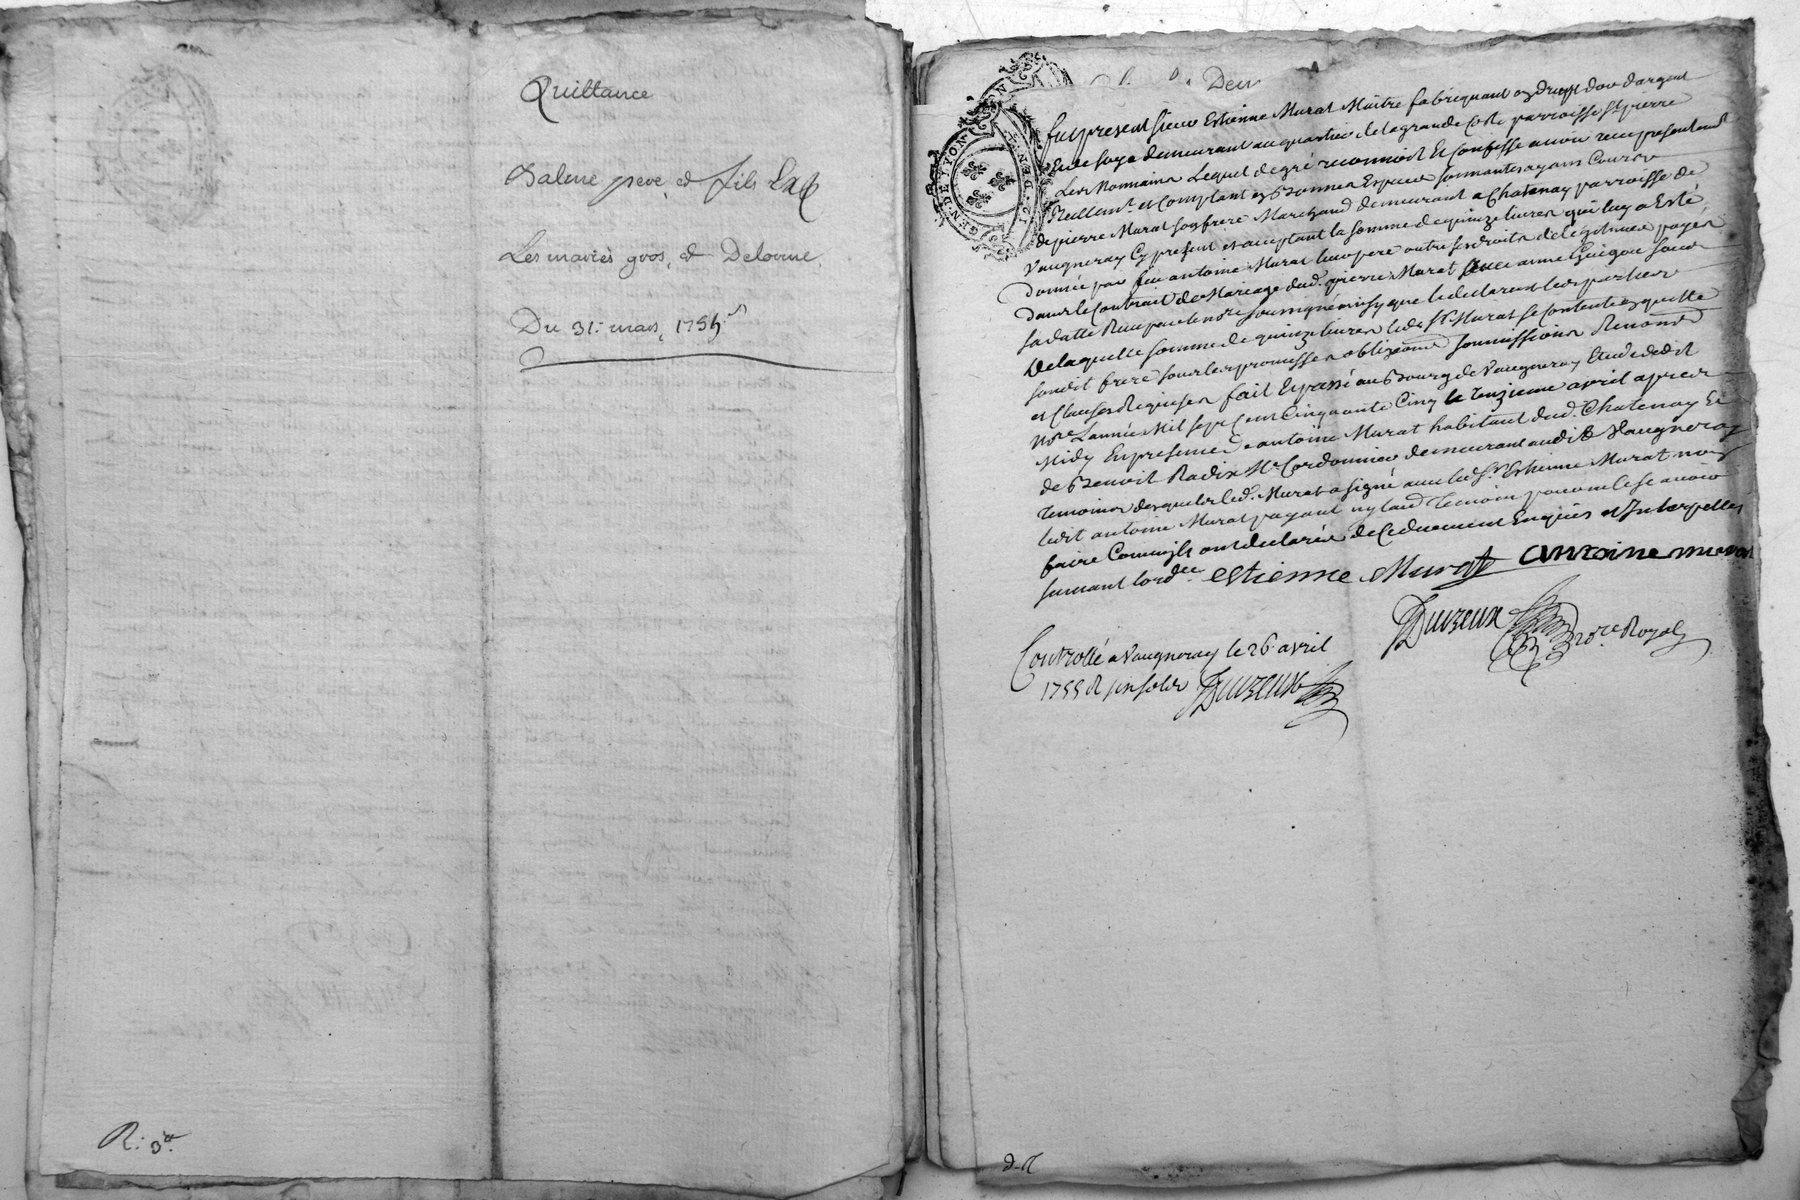 Quittance
pere et fils
Les mariés gros, et Delorme
Du 31: mars 1755
R: 3a
GEN. DE LYON
2. DEN.
Fut present Sieur Estienne Murat Maitre fabriquant en draps d'or d'argent
Et de soye demeurant au quartier de la grande Coste parroisse St pierre
Lequel de gré reconnoit Et Confesse avoir receu presentemt
Reellemt et Comptant en Bonnes Especes sonnantes ayans Cours
de pierre Murat son frere Marchand demeurant a Chatenay parroisse de
Vaugneray Cy present et acceptant la somme de quinze livres qui luy a Esté
donnée par feu antoine Murat leur pere outre ses droits de legitime payés
dans le Contrait de Mariage dud. pierre Murat avec anne sous
sa datte Receu par le nore soussigné ainsy que le declarent les parties
De laquelle somme de quinze livres led. Sr Murat se Contente en quitte
sondit frere sous les promesses obligaons soumissions Renonons
et Clauses Requises fait Et passé au Bourg de Vaugneray Etude dudit
nore L'année Mil sept Cent Cinquante Cinq le treizieme avril apres
Midy En presence d'antoine Murat habitant dud. Chatenay Et
de Benoit Radix Me Cordonnier demeurant audit Vaugneray
temoins desquels led. Murat a signé avec led. Sr Estienne Murat non
ledit
faire Comme ils ont declaré de Ce duement Enquis et Interpellés
suivant l'ordce estienne Murat antoine murat
Duvzeux nore Royal
Controllé a Vaugneray le 26 avril
1755 R six sols Duvzeux
d-R